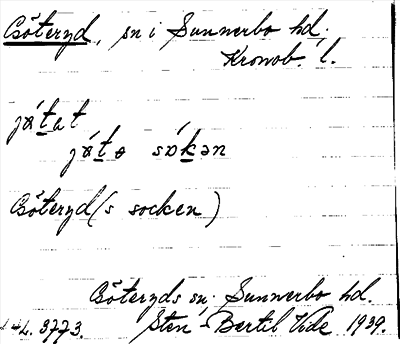 Göteryd, sn i Sunnerbo hd.
Kronob. l.
jǿtat
jǿtə sɒ́kən
Göteryd (s socken)
Göteryds sn. Sunnerbo hd.
3773. Sten-Bertil Vide 1939.